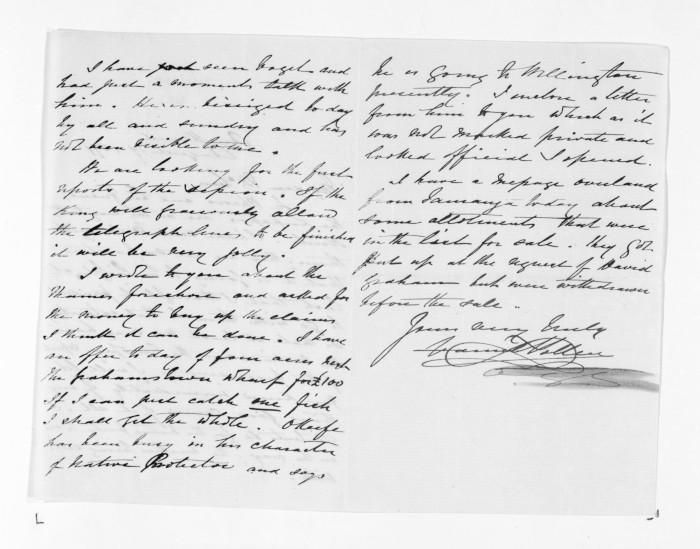 I have just seen Vogel and
had just a moments talk with
him. He is besieged to day
by all and sundry and has
not been visible to me.
We are looking for the first
reports of the
King will graciously allow
the telegraph lines to be finished
it will be very jolly.
I wrote to you about the
Thames foreshore and asked for
the money to buy up the claims
I think it can be done. I have
an offer to day of four acres next
the Grahamstown Wharf for £100
If I can just catch one fish
I shall get the whole. O'Keefe
has been busy in his character
of Native Protector and says
he is going to Wellington
presently. I enclose a letter
from him to you which as it
was not marked private and
looked official I opened.
I have a message overland
from Tauranga today about
some allotments that were
in the list for sale. They got
put up at the request of David
Graham but were withdrawn
before the sale.
Yours very truly